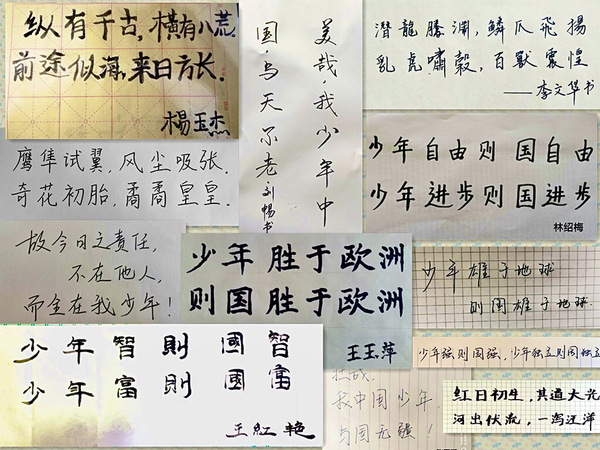 纵有千古,横有八荒.
前途似海,来日方长.
楊玉杰
美哉我少年中
国,与天不老 刘暢书
潛龍騰渊,鳞爪飛揚
乳虎嘯穀,百獸震惶
——李文华书
鹰隼试翼,风尘吸张.
奇花初胎,矞矞皇皇.
少年自由则国自由
少年進步则国進步
林绍梅
故今日之责任,
不在他人,
而全在我少年!
少年胜于欧洲
则国胜于欧洲
王玉萍
少年雄于地球
则国雄于地球.
少年强则国强,少年独立则国独立
少年智則國智
少年富則國富
王紅艳
我中国少年,
与国无疆!
红日初生,其道大光
河出伏流,一泻汪洋